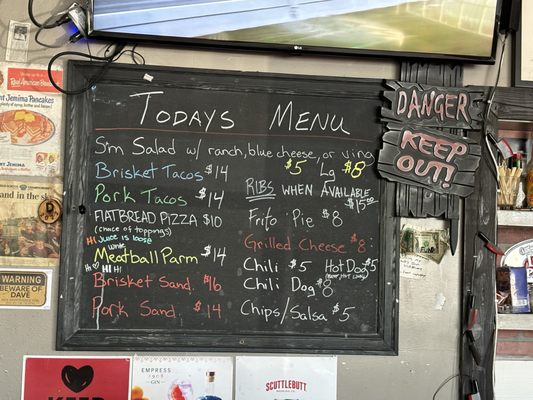 LG
TODAYS MENU
Sm Salad w/ ranch, blue cheese, or ving
$5 Lg $8
Brisket Tacos $14
Pork Tacos $14
FLATBREAD PIZZA $10
(choice of toppings)
Hi Juice is loose
Meatball Parm $14
Hi Hi!
Brisket Sand. $16
Pork Sand. $14
RIBS WHEN AVAILABLE
$15.00
Frito Pie $8
Grilled Cheese $8
Chili $5 Hot Dog $5
Chili Dog $8
Chips/Salsa $5
DANGER
KEEP
OUT!
Real American Breakfast
Aunt Jemima Pancakes
WARNING
BEWARE OF
DAVE
KEEP
EMPRESS
1908
GIN
SCUTTLEBUTT